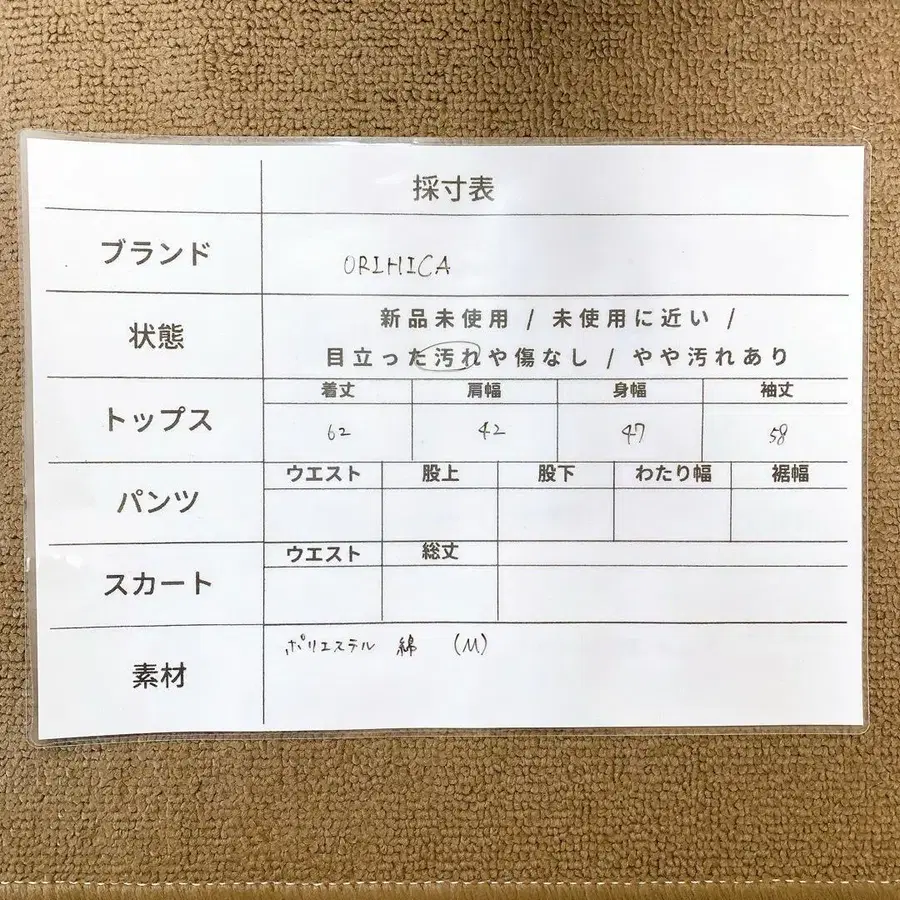 採寸表
ブランド ORIHICA
状態 新品未使用 / 未使用に近い /
目立った汚れや傷なし / やや汚れあり
トップス 着丈 肩幅 身幅 袖丈
62 42 47 58
パンツ ウエスト 股上 股下 わたり幅 裾幅
スカート ウエスト 総丈
素材 ポリエステル 綿 (M)